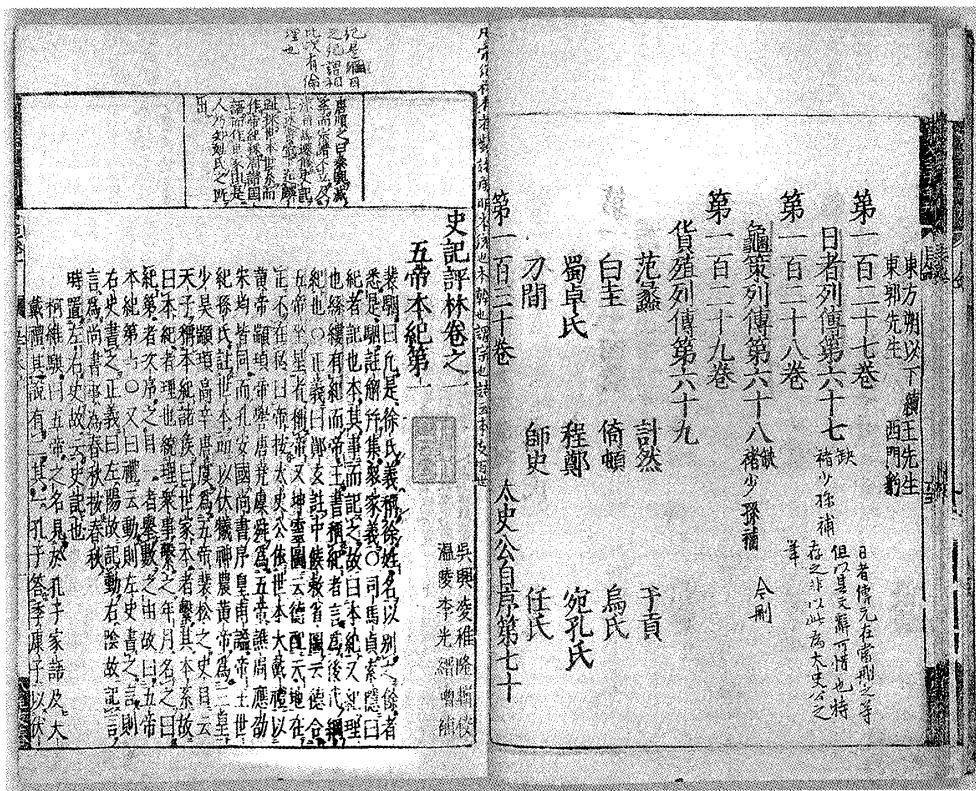 東方朔以下續 王先生
東郭先生 西門豹
第一百二十七卷
日者列傳第六十七 缺 褚少孫補
日者傳元在當刑之等
但以其文辭可惜也特
存之非以此為太史公之
筆
第一百二十八卷
龜策列傳第六十八 缺 褚少孫補 今刪
第一百二十九卷
貨殖列傳第六十九
范蠡 計然 子貢
白圭 倚頓 烏氏
蜀卓氏 程鄭 宛孔氏
刀間 師史 任氏
第一百三十卷 太史公自序第七十
紀是綱目
之紀謂
此次有倫
理也
史記評林卷之一
吳興凌稚隆輯校
溫陵李光縉增補
五帝本紀第一
裴駰曰凡是徐氏義稱徐姓名以別之餘者
悉是駰註解并集衆家義〇司馬貞索隱曰
紀者記也本其事而記之故曰本紀又紀理
也絲縷有紀而帝王書稱紀者言為後代綱
紀也〇正義曰鄭玄註中候敕省圖云德合
五帝坐星者稱帝又坤靈圖云德配天地在
正不在私曰帝按太史公依世本大戴禮以
黃帝顓頊帝嚳唐堯虞舜為五帝譙周應劭
宋均皆同而孔安國尚書序皇甫謐帝王世
紀孫氏註世本而以伏犧神農黃帝為三皇
少昊顓頊高辛唐虞為五帝裴松之史目云
天子稱本紀諸侯曰世家本者繫其本系故
曰本紀者理也統理衆事繫之年月名之曰
紀第者次序之目一者舉數之由故曰五帝
本紀第一〇又曰禮云動則左史書之言則
右史書之正義曰左陽故記動右陰故記言
言為尚書事為春秋按春秋
時置左右史故云史記也
柯維騏曰五帝之名見於孔子家語及大
戴禮其說有二其一孔子答季康子以伏